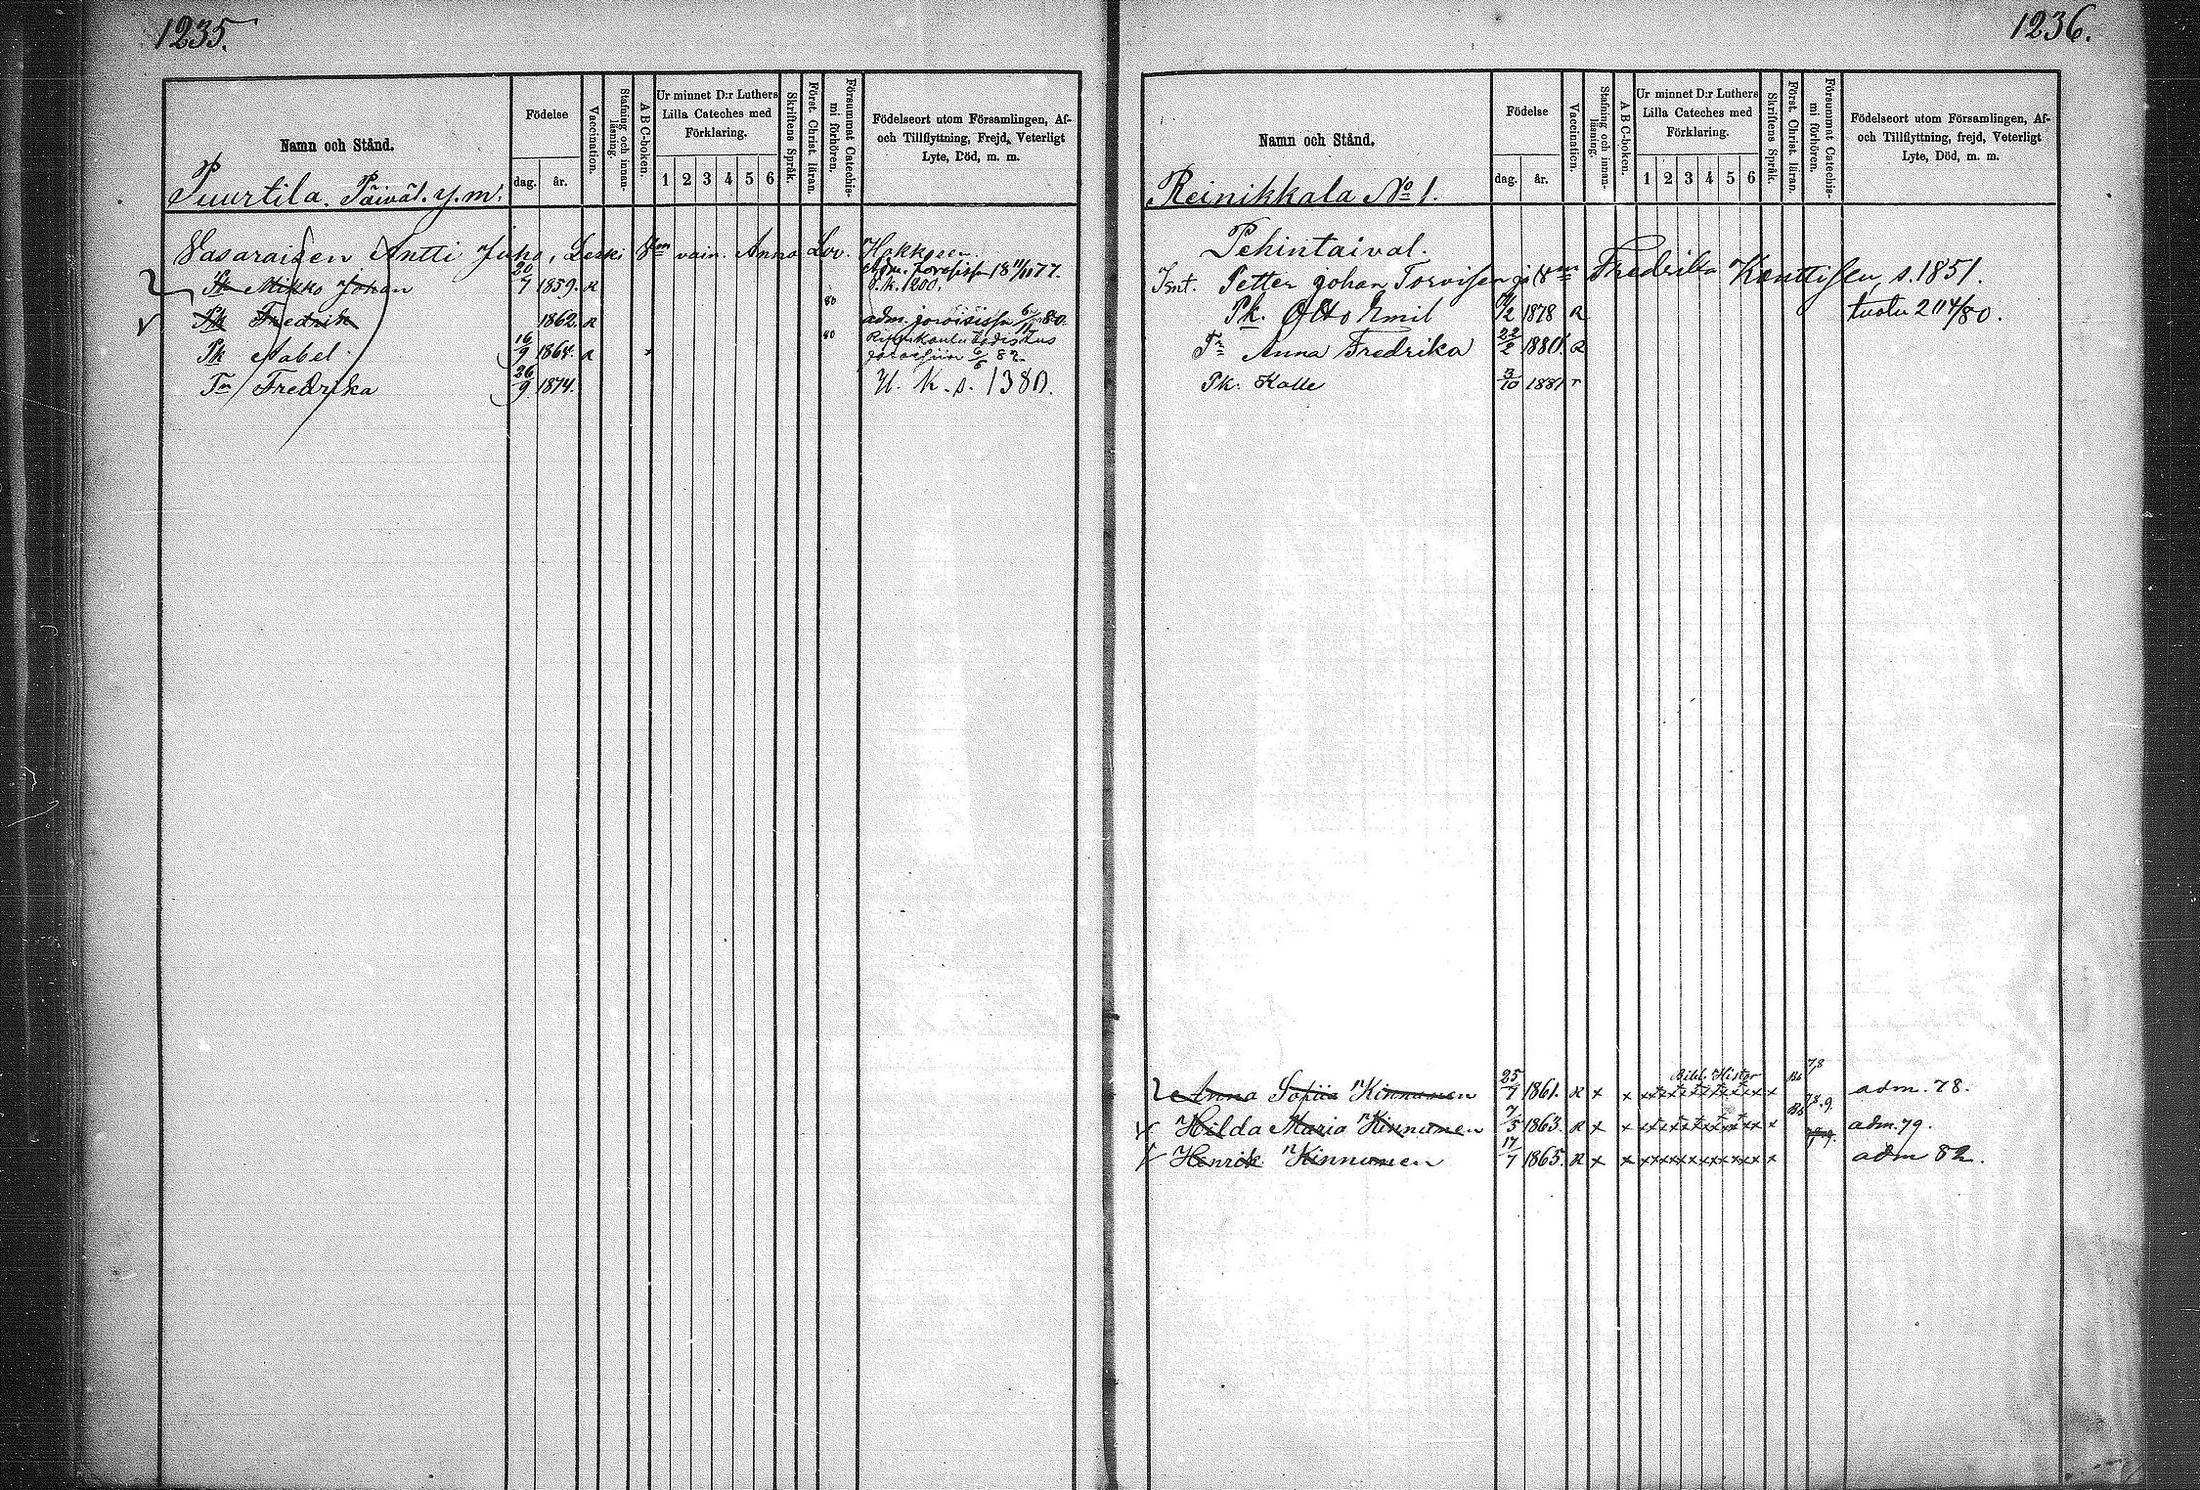 1235.
Namn och Stånd.
Födelse
dag. år.
Vaccination.
Stafning och innanläsning.
A B C-boken.
Ur minnet D:r Luthers
Lilla Cateches med
Förklaring.
1 2 3 4 5 6
Skriftens Språk.
Först. Christ. läran.
Försummat Catechismi förhören.
Födelseort utom Församlingen, Af-
och Tillflyttning, Frejd, Veterligt
Lyte, Död, m. m.
Puurtila. Päiväl. y. m.
Vasaraisen Antti Juho, Leski V:m vain. Anna Lov. Hakkosen
Pk Mikko Johan 20/7 1859. R adm. 18 11/11 77. s. k. 1200.
Pk Fredrik 1862. R 80 adm. joroisissa 80.
Pk Aabel 16/9 1864. R 80 Rippikoulu todistus 6/6 82
T:r Fredrika 26/9 1874. U. K. s. 1380.
1236.
Namn och Stånd.
Födelse
dag. år.
Vaccination.
Stafning och innanläsning.
A B C-boken.
Ur minnet D:r Luthers
Lilla Cateches med
Förklaring.
1 2 3 4 5 6
Skriftens Språk.
Först. Christ. läran.
Försummat Catechismi förhören.
Födelseort utom Församlingen, Af-
och Tillflyttning, frejd, Veterligt
Lyte, Död, m. m.
Reinikkala No 1.
Pehintaival.
Petter Johan Torvisen ja V:m Fredrika Konttisen, s. 1851.
Pk. Otto Emil 1878 R
T:r Anna Fredrika 22/2 1880. R
Pk. Kalle 3/10 1881 r
Bibl. Histor 78
Anna Sofiia Kinnunen 25/7 1861. R x x adm. 78.
Hilda Maria Kinnunen 7/5 1863. R x x adm. 79.
Henrik Kinnunen 17/7 1865. R x x xxxxxxxxxx x adm 82.